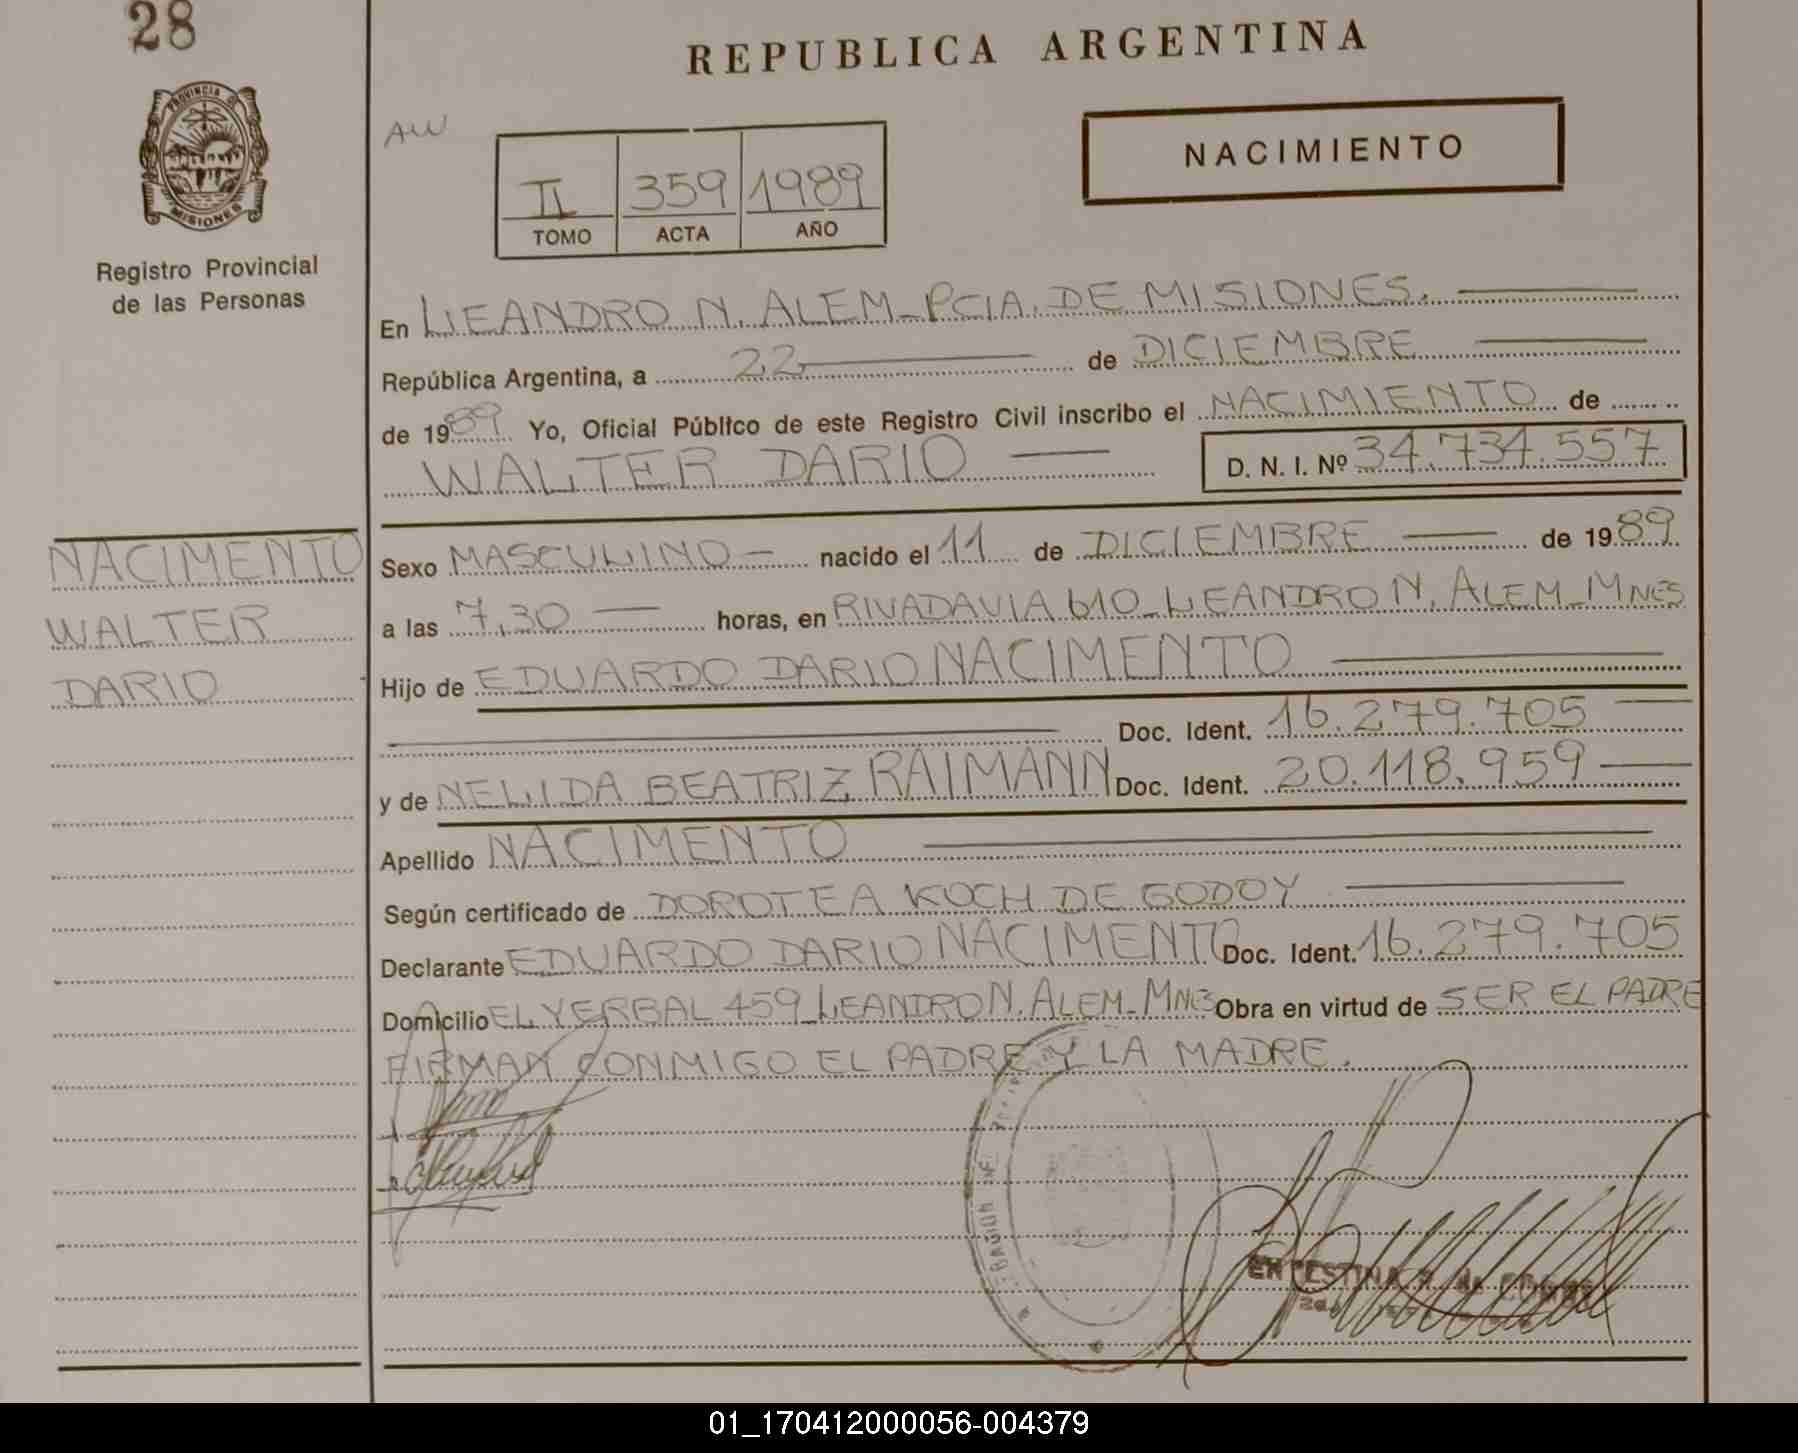 28
REPUBLICA ARGENTINA
PROVINCIA DE
MISIONES
Registro Provincial
de las Personas
AW
II 359 1989
TOMO ACTA AÑO
NACIMIENTO
En LEANDRO N. ALEM_PCIA. DE MISIONES.
República Argentina, a 22 de DICIEMBRE
de 1989 Yo, Oficial Público de este Registro Civil inscribo el NACIMIENTO de
WALTER DARIO D. N. I. Nº 34.734.557
NACIMENTO
WALTER
DARIO
Sexo MASCULINO nacido el 11 de DICIEMBRE de 1989
a las 7,30 horas, en RIVADAVIA 610_LEANDRO N. ALEM_MNES
Hijo de EDUARDO DARIO NACIMENTO
Doc. Ident. 16.279.705
y de NELIDA BEATRIZ RAIMANN Doc. Ident. 20.118.959
Apellido NACIMENTO
Según certificado de DOROTEA KOCH DE GODOY
Declarante EDUARDO DARIO NACIMENTO Doc. Ident. 16.279.705
Domicilio EL YERBAL 459_LEANDRO N. ALEM_MNES Obra en virtud de SER EL PADRE
FIRMAN CONMIGO EL PADRE Y LA MADRE.
01_170412000056-004379